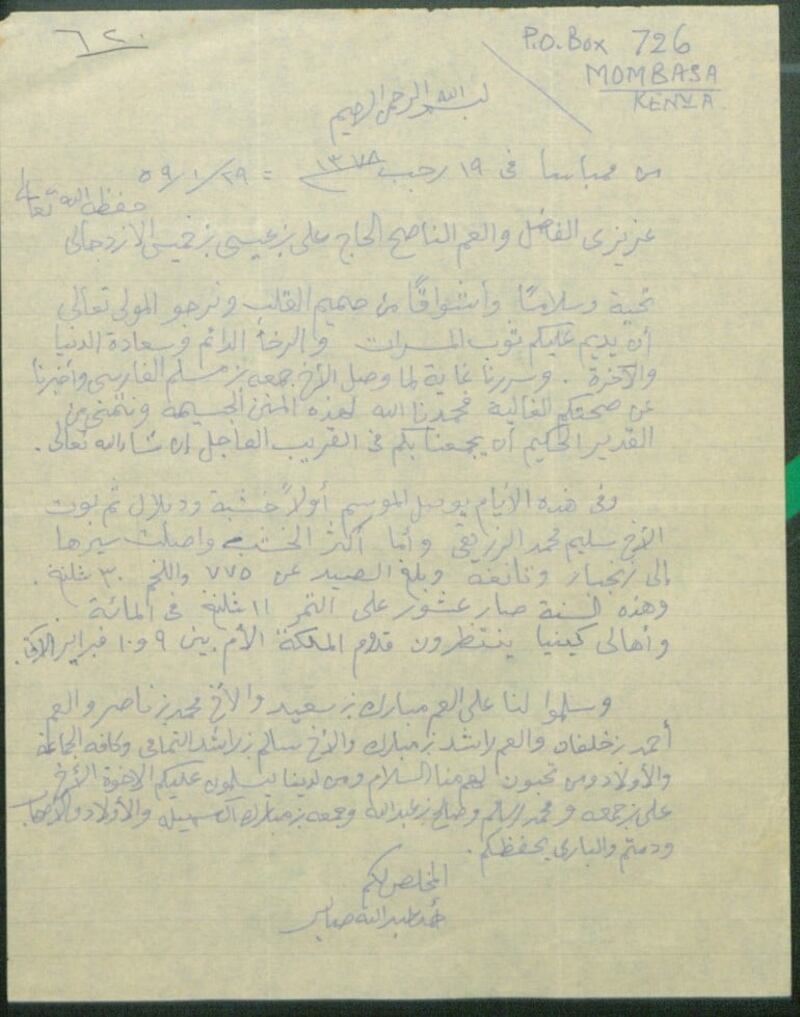 ٦٢٠
P.O. Box 726
MOMBASA
KENYA.
بسم الله الرحمن الرحيم
من ممباسا في ١٩ رجب ١٣٧٨ = ٥٩/١/٢٩
حفظه الله تعالى
عزيزي الفاضل والعم الناصح الحاج علي بن عيسى بن خميس
تحية وسلاما وأشواقًا من صميم القلب ونرجو المولى تعالى
أن يديم عليكم ثوب المسرات والرخأ الدائم وسعادة الدنيا
والآخرة . وسررنا غاية لما وصل الأخ جمعه بن مسلم الفارسي وأخبرنا
عن صحتكم الغالية فحمدنا الله لهذه المنن الجسيمة ونتمنى من
القدير الحكيم أن يجمعنا بكم في القريب العاجل إن شاء الله تعالى .
وفي هذه الأيام يوصل الموسم أولاً خشبة ثم بوت
الأخ سليم محمد الرزيقي وأما أكثر الخشب واصلت سيرها
إلى زنجبار وبلغ الصيد عن ٧٧٥ واللخم ٣٠ شلنج .
وهذه السنة صار عشور على التمر ١١ شلنج في المائة .
وأهالي كينيا ينتظرون قدوم الملكة الأم بين ٩ و١٠ فبراير الآتي.
وسلموا لنا على العم مبارك بن سعيد والأخ محمد بن ناصر والعم
أحمد بن خلفان والعم راشد بن مبارك والأخ سالم بن راشد وكافة الجماعة
والأولاد ومن تحبون لهم منا السلام ومن لدينا يسلمون عليكم الاخوة الأخ
علي بن جمعه و محمد سالم وصالح بن عبدالله وجمعه بن مبارك والأولاد والأصحاب
ودمتم والباري يحفظكم .
المخلص لكم
عبدالله